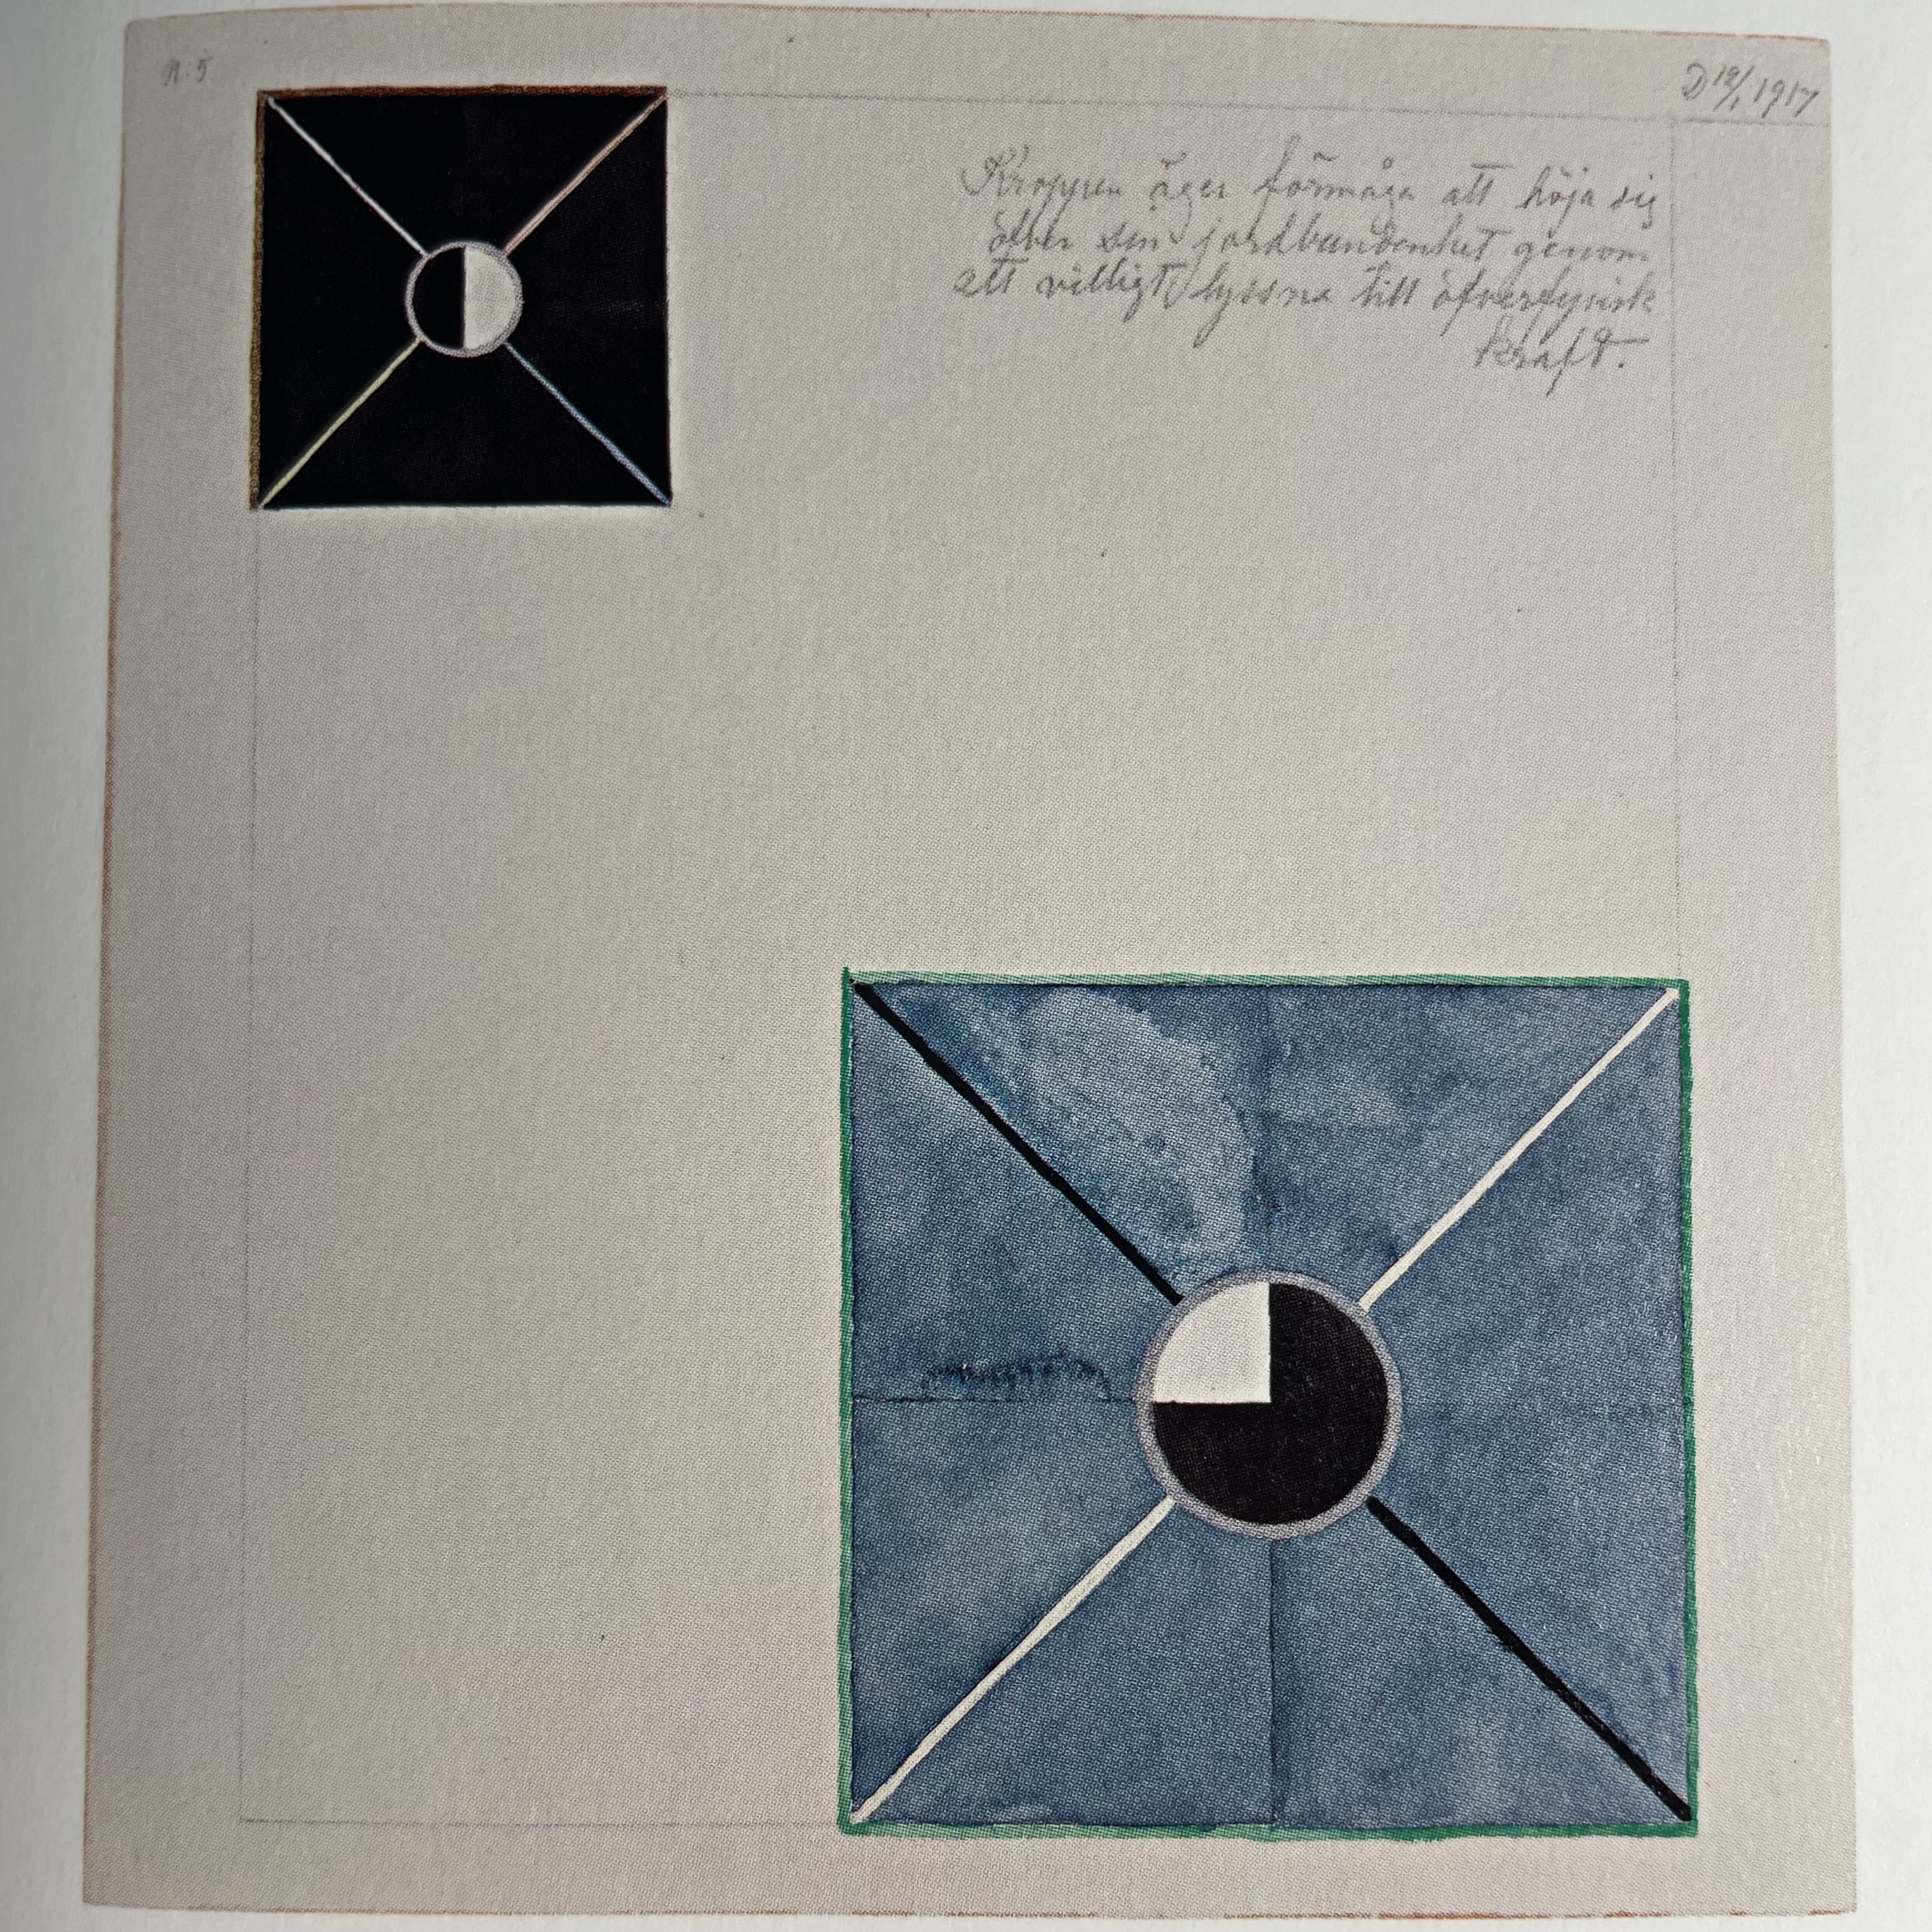 N:5
D 12/1 1917
Kroppen äger förmåga att höja sig
öfver sin jordbundenhet genom
att villigt lyssna till öfverfysisk
kraft.